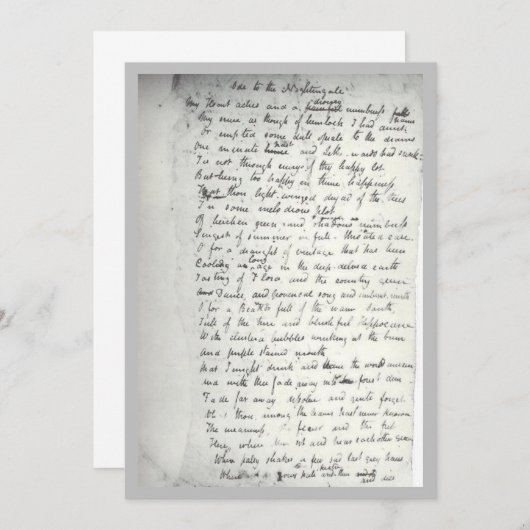 Ode to the Nightingale
drowsy
My Heart aches and a painful numbness falls
My sense as though of hemlock I had drunk
Or emptied some dull opiate to the drains
One minute past and Lethe-wards had sunk
'Tis not through envy of thy happy lot
But being too happy in thine happiness
That thou light-winged dryad of the trees
In some melodious plot
Of beechen green and shadows numberless
Singest of summer in full-throated ease.
O for a draught of vintage that has been
long
Cooling an age in the deep-delved earth
Tasting of Flora and the country green
And Dance, and provencal song and sunburnt mirth
O for a Beaker full of the warm South,
Full of the true and blushful Hippocrene
With cluster'd bubbles winking at the brim
And purple stained mouth
That I might drink and leave the world unseen
And with thee fade away into the forest dim
Fade far away dissolve and quite forget
What thou among the leaves hast never known
The weariness, the fever and the fret
Here, where Men sit and hear each other groan
Where palsy shakes a few sad last grey hairs
Where pale and thin and dies